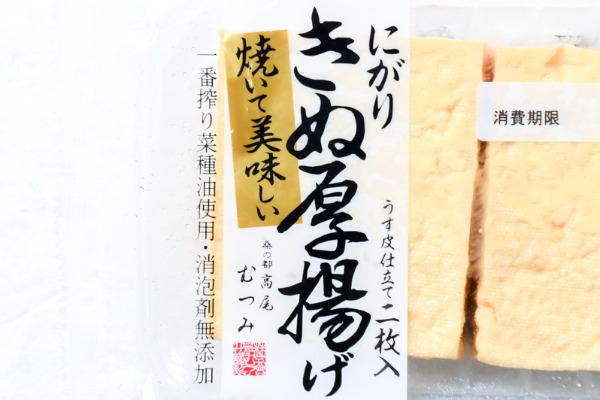 消費期限
にがり
きぬ厚揚げ
うす皮仕立て二枚入
焼いて美味しい
桑の都高尾
むつみ
一番搾り菜種油使用・消泡剤無添加